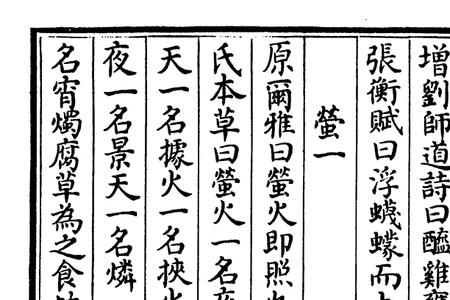 增劉師道詩曰醯雞
張衡賦曰浮蠛蠓而
螢一
原爾雅曰螢火即照
氏本草曰螢火一名夜
天一名據火一名挾火
夜一名景天一名燐
名宵燭腐草為之食